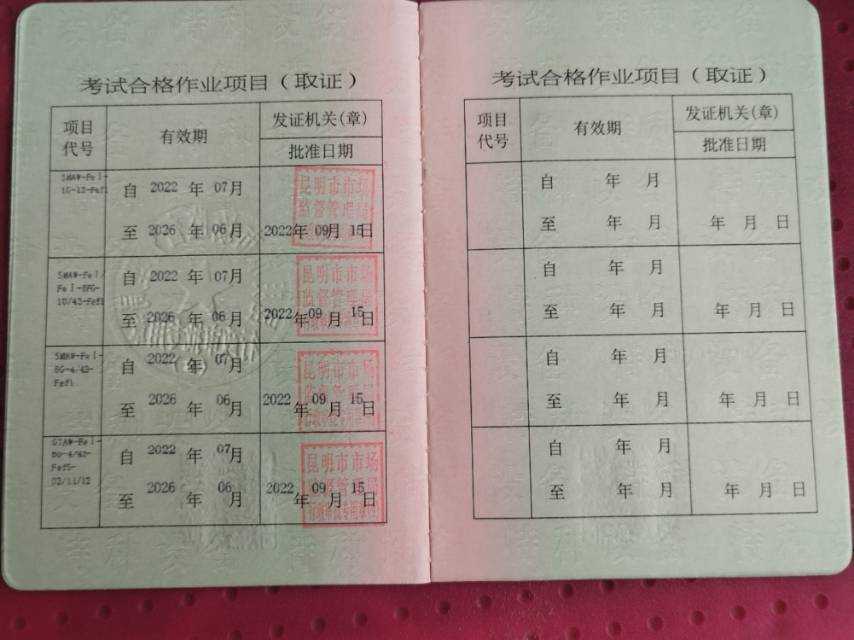 考试合格作业项目（取证）
项目代号
有效期
发证机关(章)
批准日期
SMAW-FeⅠ-
1G-12-Fef1
自 2022 年 07月
至 2026 年 06月
昆明市市场
监督管理局
2022年 09月 15日
SMAW-FeⅠ/
FeⅠ-5FG-
10/42-Fef1
自 2022 年 07月
至 2026 年 06月
昆明市市场
监督管理局
2022年 09月 15日
SMAW-FeⅠ-
6G-4/42-
Fef1
自 2022 年 07月
至 2026 年 06月
昆明市市场
监督管理局
2022年 09月 15日
GTAW-FeⅠ-
6G-4/42-
FefS-
02/11/12
自 2022 年 07月
至 2026 年 06月
昆明市市场
监督管理局
2022年 09月 15日
考试合格作业项目（取证）
项目代号
有效期
发证机关(章)
批准日期
自 年 月
至 年 月
年 月 日
自 年 月
至 年 月
年 月 日
自 年 月
至 年 月
年 月 日
自 年 月
至 年 月
年 月 日